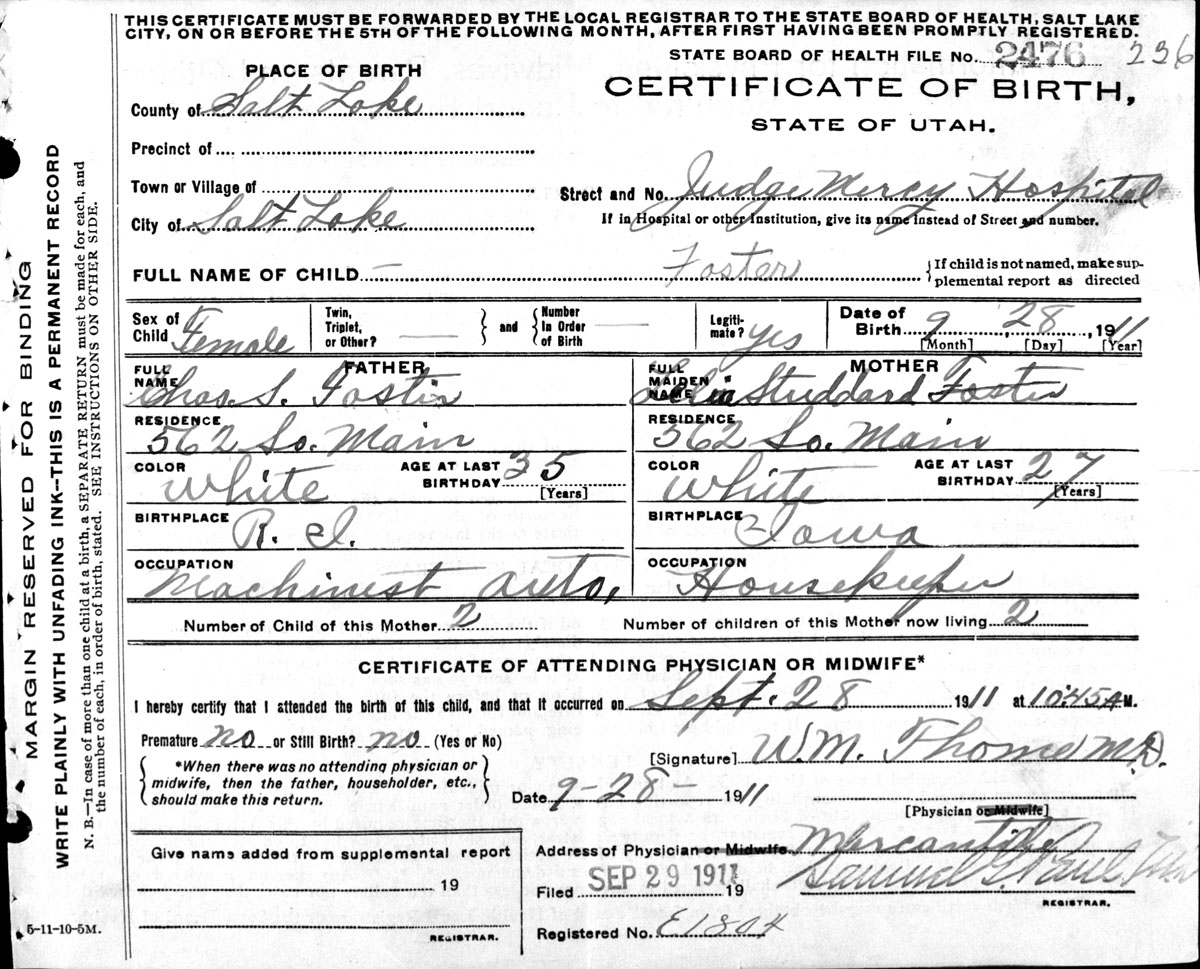 THIS CERTIFICATE MUST BE FORWARDED BY THE LOCAL REGISTRAR TO THE STATE BOARD OF HEALTH, SALT LAKE
CITY, ON OR BEFORE THE 5TH OF THE FOLLOWING MONTH, AFTER FIRST HAVING BEEN PROMPTLY REGISTERED.
STATE BOARD OF HEALTH FILE No. 2476 236
PLACE OF BIRTH
CERTIFICATE OF BIRTH,
County of Salt Lake
STATE OF UTAH.
Precinct of
Town or Village of
Street and No. Judge Mercy Hospital
City of Salt Lake
If in Hospital or other Institution, give its name instead of Street and number.
FULL NAME OF CHILD — Foster
If child is not named, make sup-
plemental report as directed
Sex of Child Female
Twin, Triplet, or Other? —
and
Number In Order of Birth —
Legiti- mate? yes
Date of Birth 9 28, 1911
[Month] [Day] [Year]
FATHER
FULL NAME Chas. S. Foster
MOTHER
FULL MAIDEN NAME Studdard Foster
RESIDENCE 562 So. Main
RESIDENCE 362 So. Main
COLOR White AGE AT LAST BIRTHDAY 35 [Years]
COLOR White AGE AT LAST BIRTHDAY 27 [Years]
BIRTHPLACE R. I.
BIRTHPLACE Iowa
OCCUPATION Machinest auto,
OCCUPATION Housekeeper
Number of Child of this Mother 2 Number of children of this Mother now living 2
CERTIFICATE OF ATTENDING PHYSICIAN OR MIDWIFE*
I hereby certify that I attended the birth of this child, and that it occurred on Sept. 28 1911 at 10:45 A M.
Premature no or Still Birth? no (Yes or No)
*When there was no attending physician or
midwife, then the father, householder, etc.,
should make this return.
[Signature] W.M. M.D.
Date 9-28- 1911
[Physician or Midwife]
Give name added from supplemental report
19
REGISTRAR.
Address of Physician or Midwife Mercantile
Filed SEP 29 1911 19 Samuel G. Paul
REGISTRAR.
Registered No. E1804
MARGIN RESERVED FOR BINDING
WRITE PLAINLY WITH UNFADING INK--THIS IS A PERMANENT RECORD
N. B.—In case of more than one child at a birth a SEPARATE RETURN must be made for each, and
the number of each, in order of birth, stated. SEE INSTRUCTIONS ON OTHER SIDE.
5-11-10-5M.